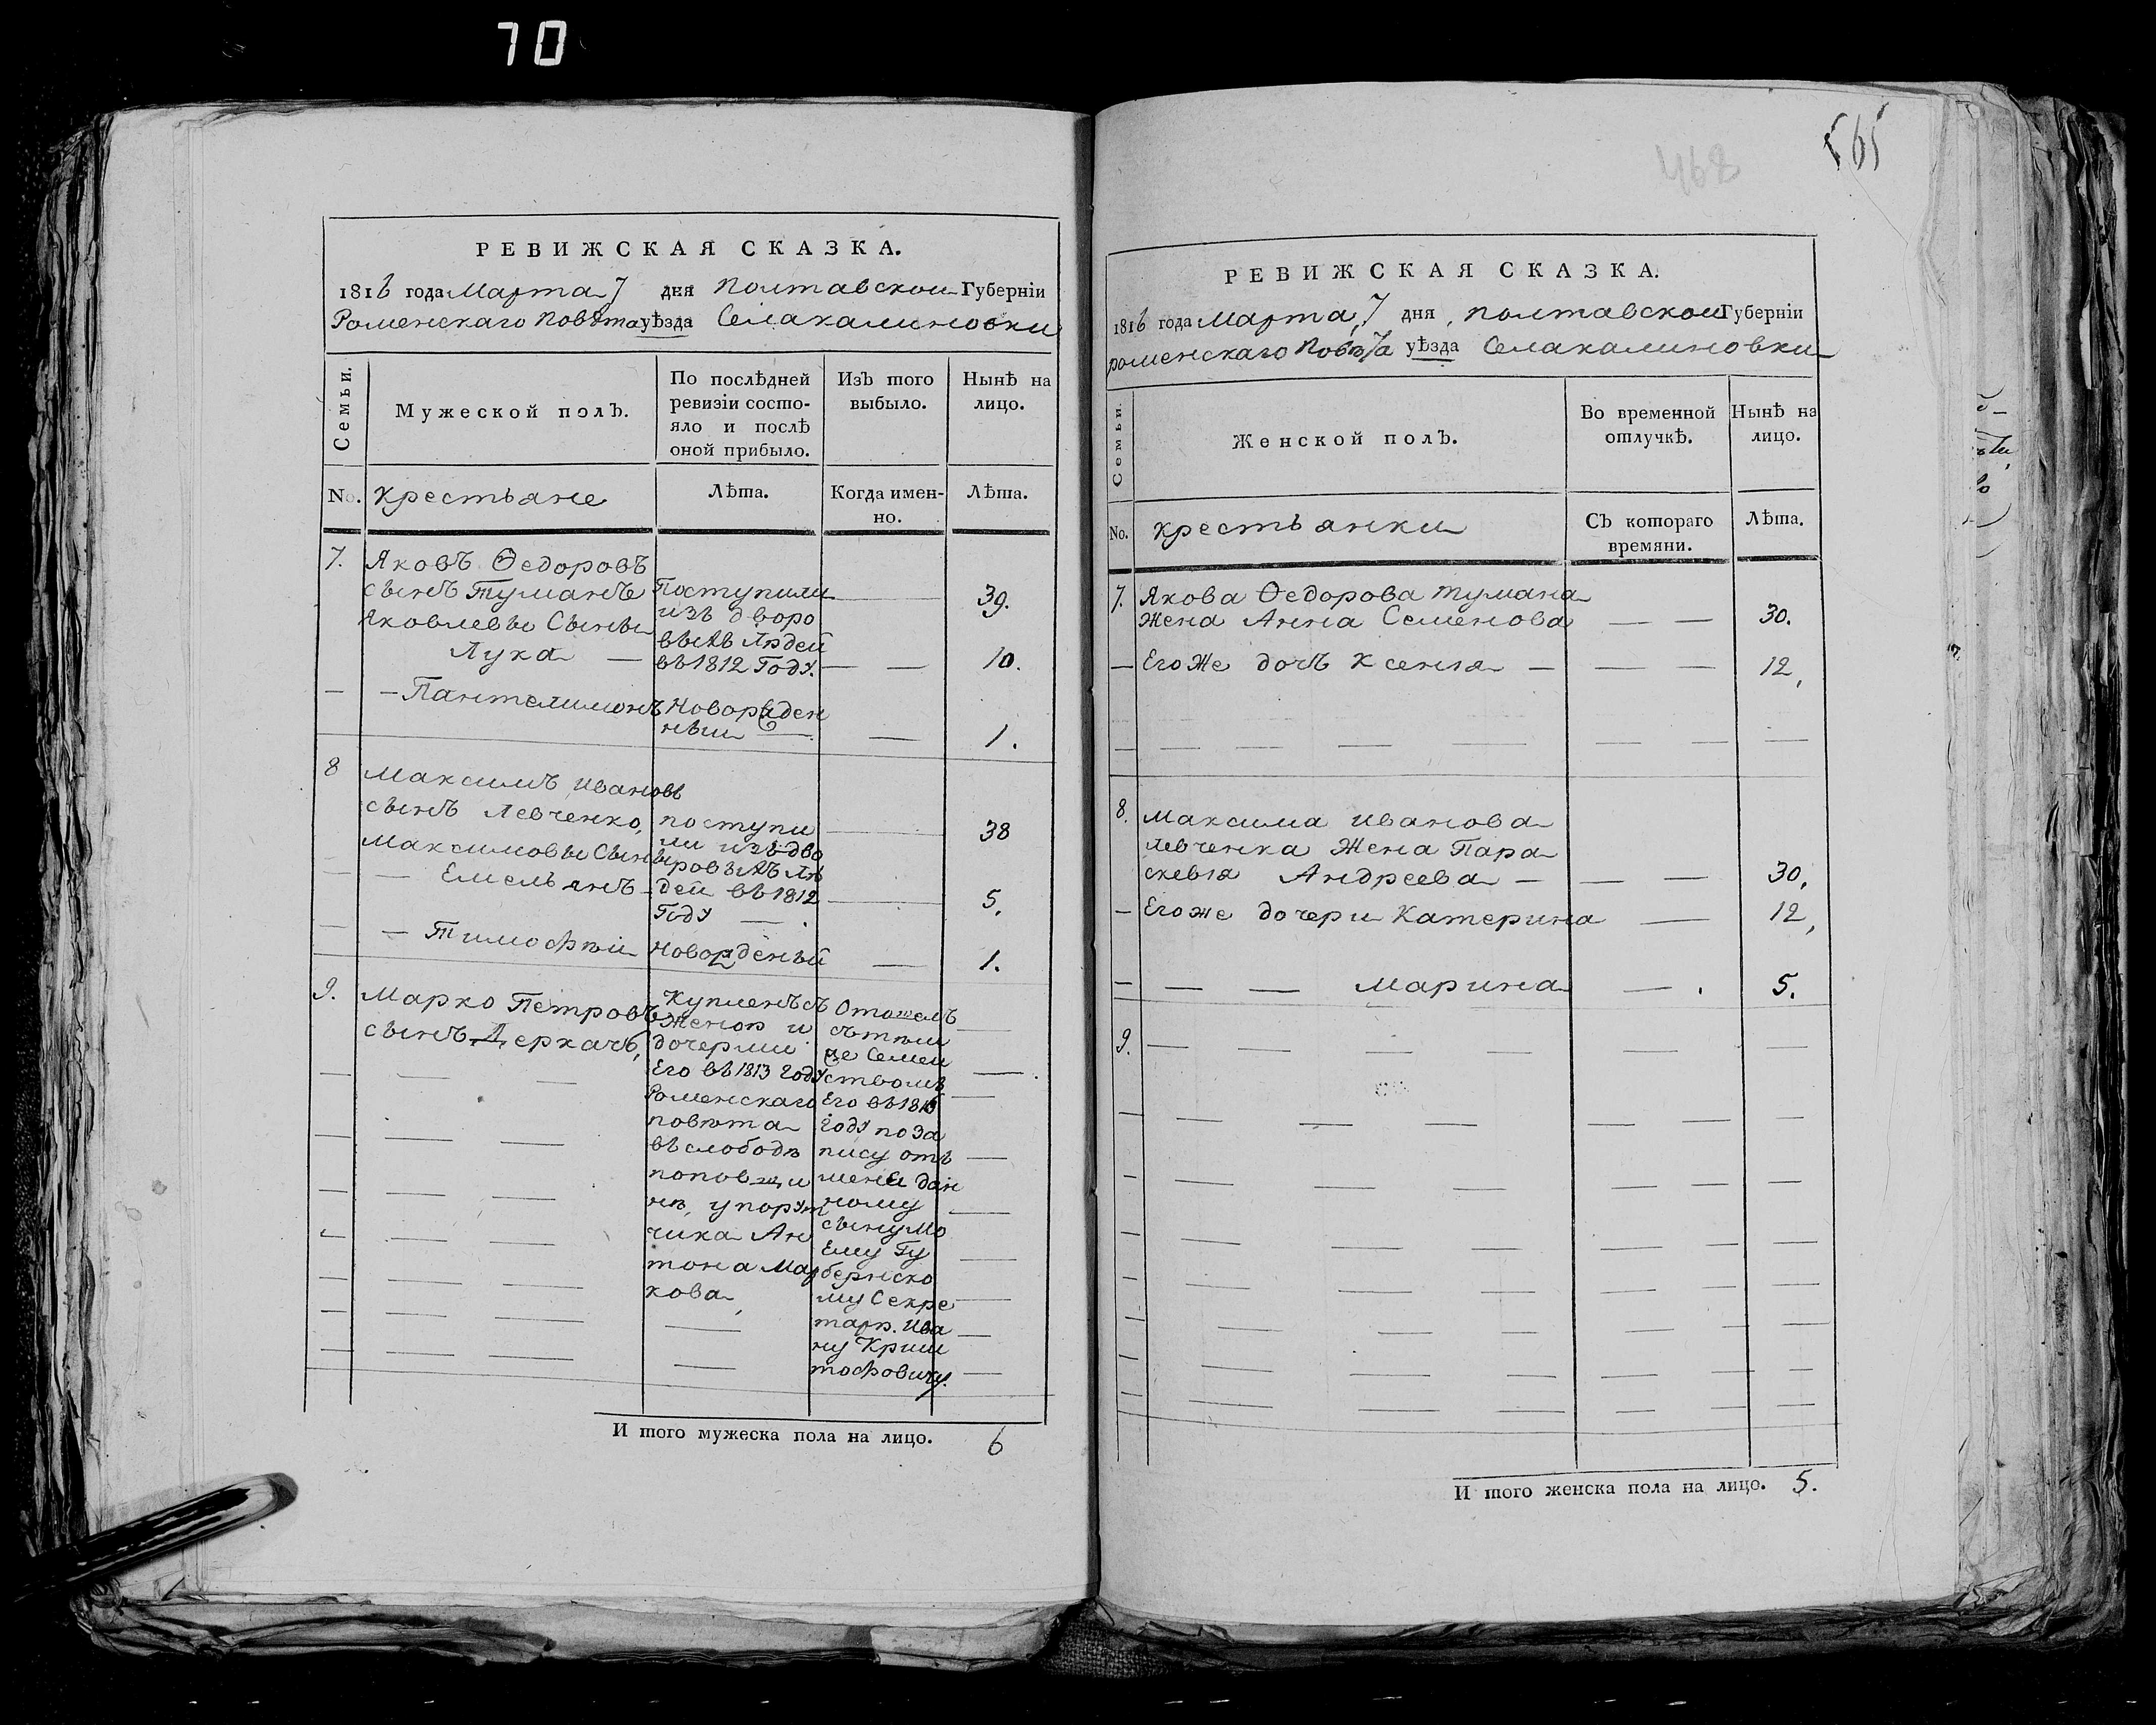 70
РЕВИЖСКАЯ СКАЗКА.
1816 года Марта 7 дня Полтавской Губерніи
Роменскаго Повѣта уѣзда Села калиновки
Семьи.
Мужеской полъ.
По послѣдней ревизіи состо-
яло и послѣ
оной прибыло.
Изъ того
выбыло.
Нынѣ на
лицо.
No. крестьяне
Лѣта.
Когда имен-
но.
Лѣта.
7. Яковъ Ѳедоровъ
сынъ Туманъ Поступили 39.
Яковлевы Сыны изъ дворо
выхъ Людей
Лука въ 1812 Году. 10.
Пантелимонъ Новорожден
ный 1.
8 Максимъ Ивановъ
сынъ Левченко, поступи 38
Максимовы Сыны ли изъ дво
ровыхъ Лю
Емельянъ дей въ 1812 5.
Году
Тимофѣй Новорожденый 1.
9. Марко Петровъ
сынъ Деркачъ,
Купленъ съ
женою и
дочерми
Его въ 1813 Году
Роменскаго
повѣта
въ слободѣ
поповщи
нѣ, у порут
чика Ан
тона Мар
кова
Отошелъ
съ тѣмъ
же Семей
ствомъ
Его въ 1815
Году по За
пису отъ
мене дан
ному
сыну Мо
Ему Гу
бернско
му Секре
тарю. Ива
ну Криш
тофовичу.
И того мужеска пола на лицо. 6
468
565
РЕВИЖСКАЯ СКАЗКА.
1816 года Марта, 7 дня, полтавской Губерніи
роменскаго Повѣта уѣзда Села калиновки
Семьи.
Женской полъ.
Во временной
отлучкѣ.
Нынѣ на
лицо.
No. крестьянки
Съ котораго
времяни.
Лѣта.
7. Якова Ѳедорова тумана
Жена Анна Семенова 30.
Его Же дочь Ксенія 12,
8. Максима Иванова
левченка Жена Пара
скевія Андреева 30,
Егоже дочери Катерина 12,
Марина 5.
9.
И того женска пола на лицо. 5.